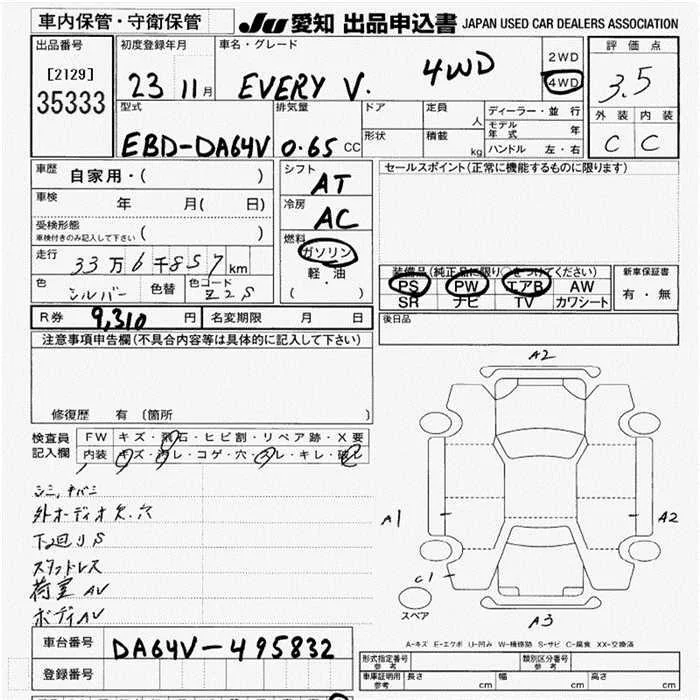 車内保管・守衛保管
JU 愛知 出品申込書 JAPAN USED CAR DEALERS ASSOCIATION
出品番号
[2129]
35333
初度登録年月
23 11月
車名・グレード
EVERY V. 4WD
2WD
4WD
評価点
3.5
外装 内装
C C
型式
EBD-DA64V
排気量
0.65 CC
ドア
形状
定員
人
積載
kg
ディーラー・並行
モデル年式 年
ハンドル 左・右
車歴 自家用・( )
車検 年 月( 日)
受検形態
車検付きのみ記入して下さい ( )
走行 33万6千857km
色 シルバー 色替 色コード Z2S
シフト
AT
冷房
AC
燃料
ガソリン
軽・油
( )
セールスポイント(正常に機能するものに限ります)
装備品(純正品に限り○をつけてください)
PS PW エアB AW
SR ナビ TV カワシート
新車保証書
有・無
R券 9,310 円 名変期限 月 日
後日品
注意事項申告欄(不具合内容等は具体的に記入して下さい)
修復歴 有 〔箇所 〕
検査員
記入欄
FW キズ・飛石・ヒビ割・リペア跡・X要
内装 キズ・汚レ・コゲ・穴・スレ・キレ・破レ
シミ,
外オーディオ欠.穴
下回りS
スタッドレス
荷室 AV
ボディAV
A2
A1
A2
C1
スペア
A3
A-キズ E-エクボ U-凹み W-補修跡 S-サビ C-腐食 XX-交換済
車台番号 DA64V-495832
登録番号
形式指定番号
参考
類別区分番号
参考
車庫証明用
参考
長さ cm 幅 cm 高さ cm